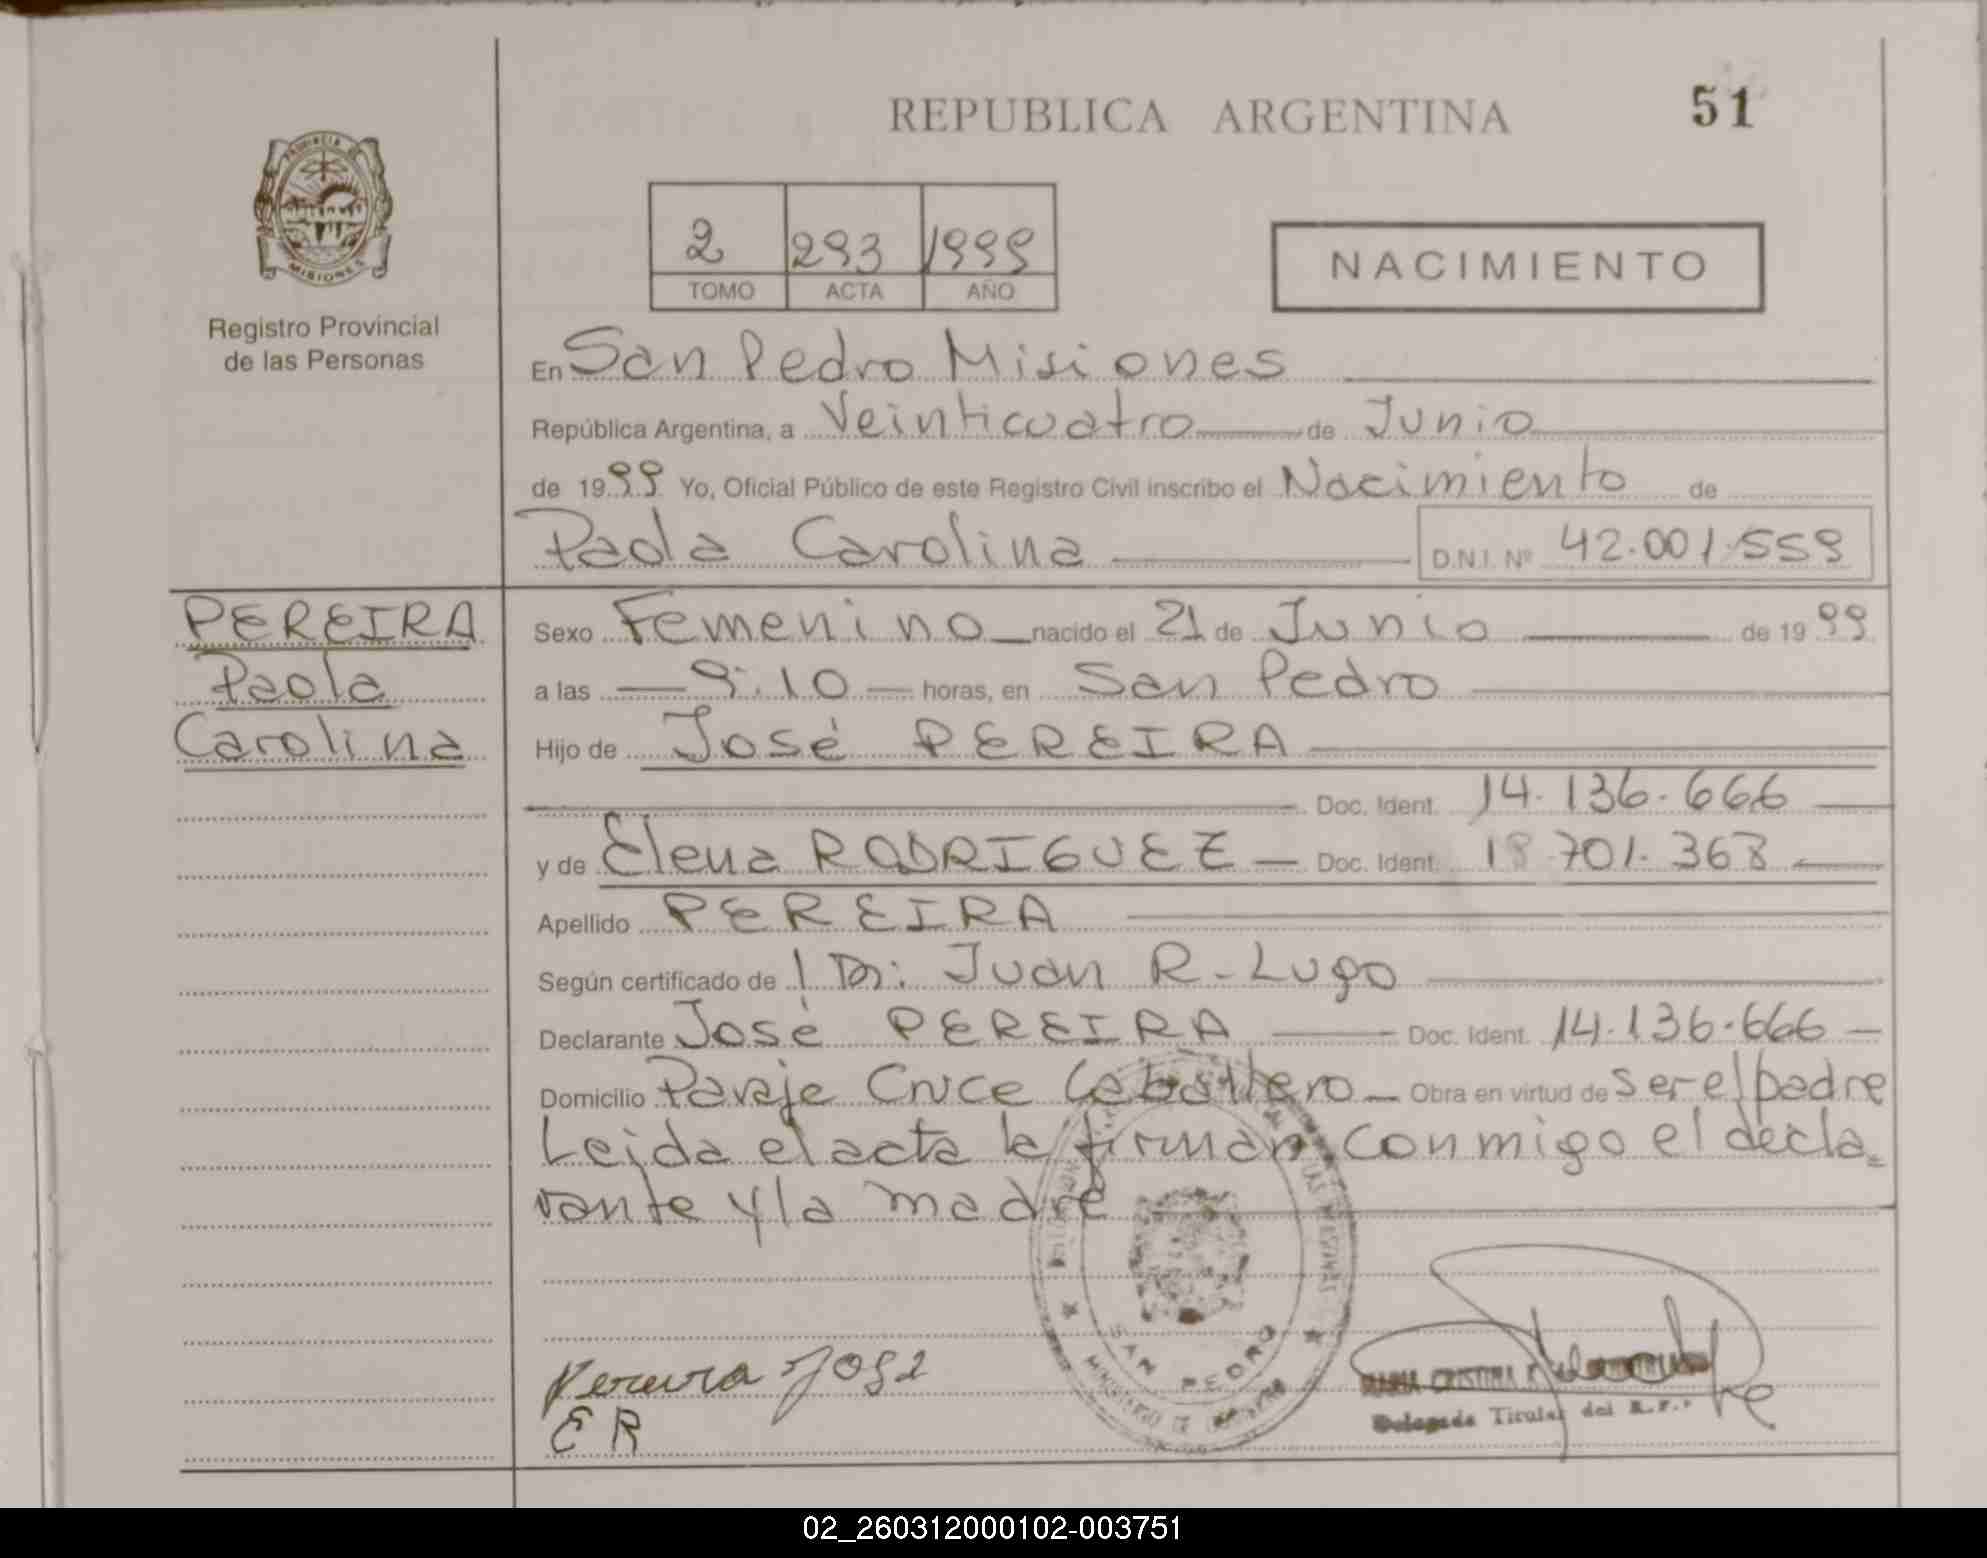 REPUBLICA ARGENTINA
51
PROVINCIA DE
MISIONES
Registro Provincial
de las Personas
2 293 1999
TOMO ACTA AÑO
NACIMIENTO
En San Pedro Misiones
República Argentina, a Veinticuatro de Junio
de 1999 Yo, Oficial Público de este Registro Civil inscribo el Nacimiento de
Paola Carolina D.N.I. Nº 42.001.559
PEREIRA
Paola
Carolina
Sexo Femenino nacido el 21 de Junio de 1999
a las 9:10 horas, en San Pedro
Hijo de José PEREIRA
Doc. Ident. 14.136.666
y de Elena RODRIGUEZ Doc. Ident. 18.701.368
Apellido PEREIRA
Según certificado de l Dr: Juan R. Lugo
Declarante José PEREIRA Doc. Ident. 14.136.666
Domicilio Paraje Cruce Caballero Obra en virtud de ser el padre
Leida el acta la firman conmigo el decla
rante y la madre
SAN PEDRO
MINISTERIO DE
Pereira José
ER
CRISTINA
Delegada Titular del R.P.
02_260312000102-003751